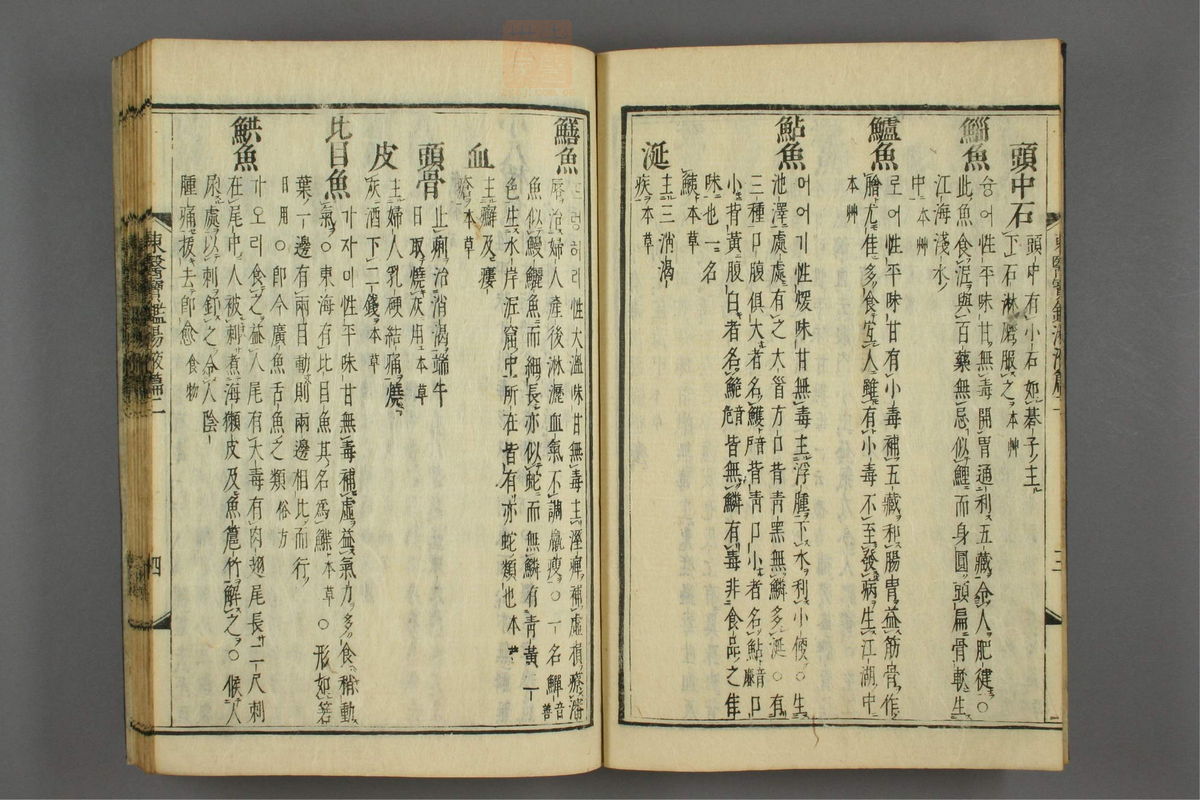 頭中石 頭中有小石如碁子主
下石淋磨服之本艸
鯔魚 숭어性平味甘無毒開胃通利五藏令人肥健○
此魚食泥與百藥無忌似鯉而身圓頭扁骨軟生
江海淺水
中本艸
鱸魚 로어性平味甘有小毒補五藏和腸胃益筋骨作
膾尤佳多食宜人雖有小毒不至發病生江湖中
本艸
鮎魚 머어기性煖味甘無毒主浮腫下水利小便○生
池澤處處有之大首方口背青黑無鱗多涎○有
三種口腹俱大者名鱯音 背青口小者名鮎音 口
小背黃腹白者名鮠音危皆無鱗有毒非食品之佳
味也一名
鮧本草
涎 主三消渴
疾本草
鱓魚 드렁허리性大溫味甘無毒主溼痺補虛損療瀋
脣治婦人產後淋瀝血氣不調羸瘦○一名鱓音善
魚似鰻鱺魚而細長亦似蛇而無鱗有青黃二
色生水岸泥窟中所在皆有亦蛇類也本艸
血 主癬及瘻
瘡本草
頭骨 止痢治消渴端午
日取燒灰用本草
皮 主婦人乳硬結痛燒
灰酒下二錢本草
比目魚 가자미性平味甘無毒補虛益氣力多食稍動
氣○東海有比目魚其名爲鰈本草○形如箬
葉一邊有兩目動則兩邊相比而行
日用○卽今廣魚舌魚之類俗方
鮏魚 가오리食之益人尾有大毒有肉翅尾長二尺刺
在尾中人被刺煮海獺皮及魚扈竹解之○候人
尿處以刺釘之令人陰
腫痛拔去卽愈食物
東醫寶鑑湯液篇二
三
四